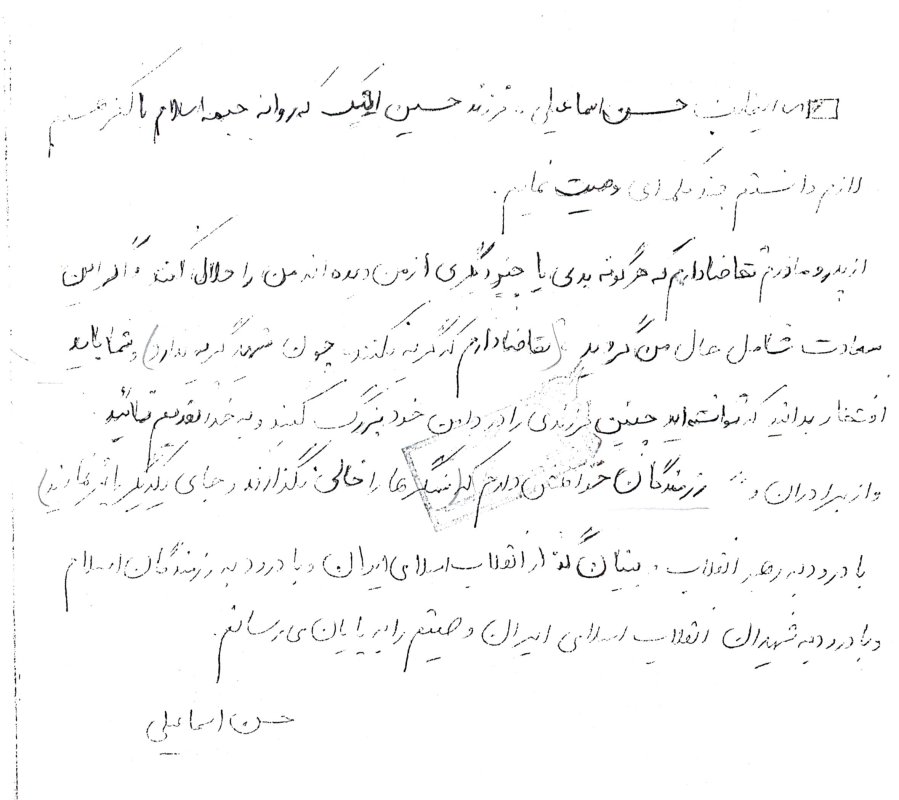 اینجانب حسن اسماعیلی فرزند حسین اینک که روانه جبهه اسلام با کفر هستم
لازم دانستم چند کلمه ای وصیت نمایم.
از پدر و مادرم تقاضا دارم که هرگونه بدی یا چیز دیگری از من دیده اند من را حلال کنند و اگر این
سعادت شامل حال من گردید (تقاضا دارم که گریه نکنند چون شهید گریه ندارد) و شما باید
افتخار بدانید که توانسته اید چنین فرزندی را در دامن خود بزرگ کنید و به خدا تقدیم نمائید
و از برادران و رزمندگان خواهش دارم که سنگرها را خالی نگذارند و جای یکدیگر را
با درود به رهبر انقلاب و بنیان گذار انقلاب اسلامی ایران و با درود به رزمندگان اسلام
و با درود به شهیدان انقلاب اسلامی ایران وصیتم را به پایان می رسانم.
حسن اسماعیلی